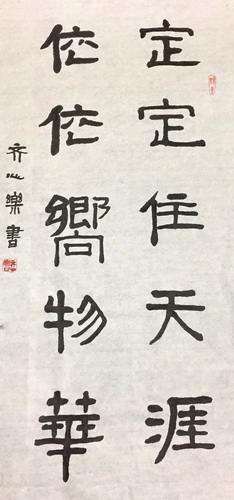 定定住天涯
依依嚮物華
齐心樂書